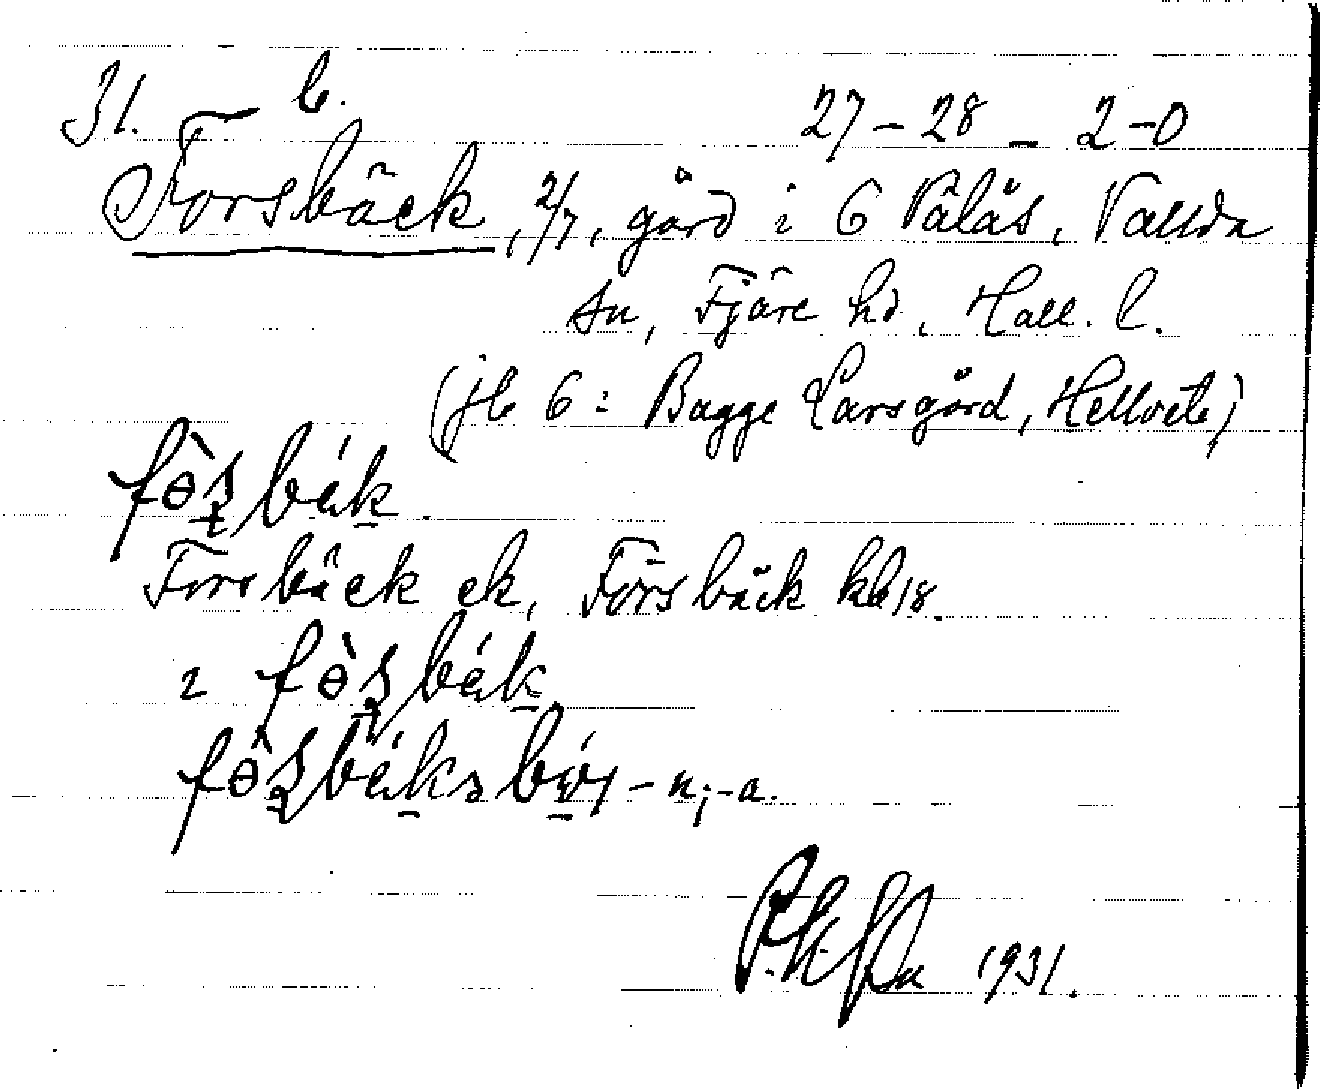 31. b.
27 – 28 – 2–0
Forsbäck, 2/7, gård i 6 Valås, Vallda
sn, Fjäre hd, Hall. l.
(jb 6: Bagge Larsgård, Hellvete)
fɵ̀ʂbák
Forsbäck ek, Förs bäck kb18.
2 fɵ̀ʂbák
fɵ̀ʂbáks -n; -a.
1931.